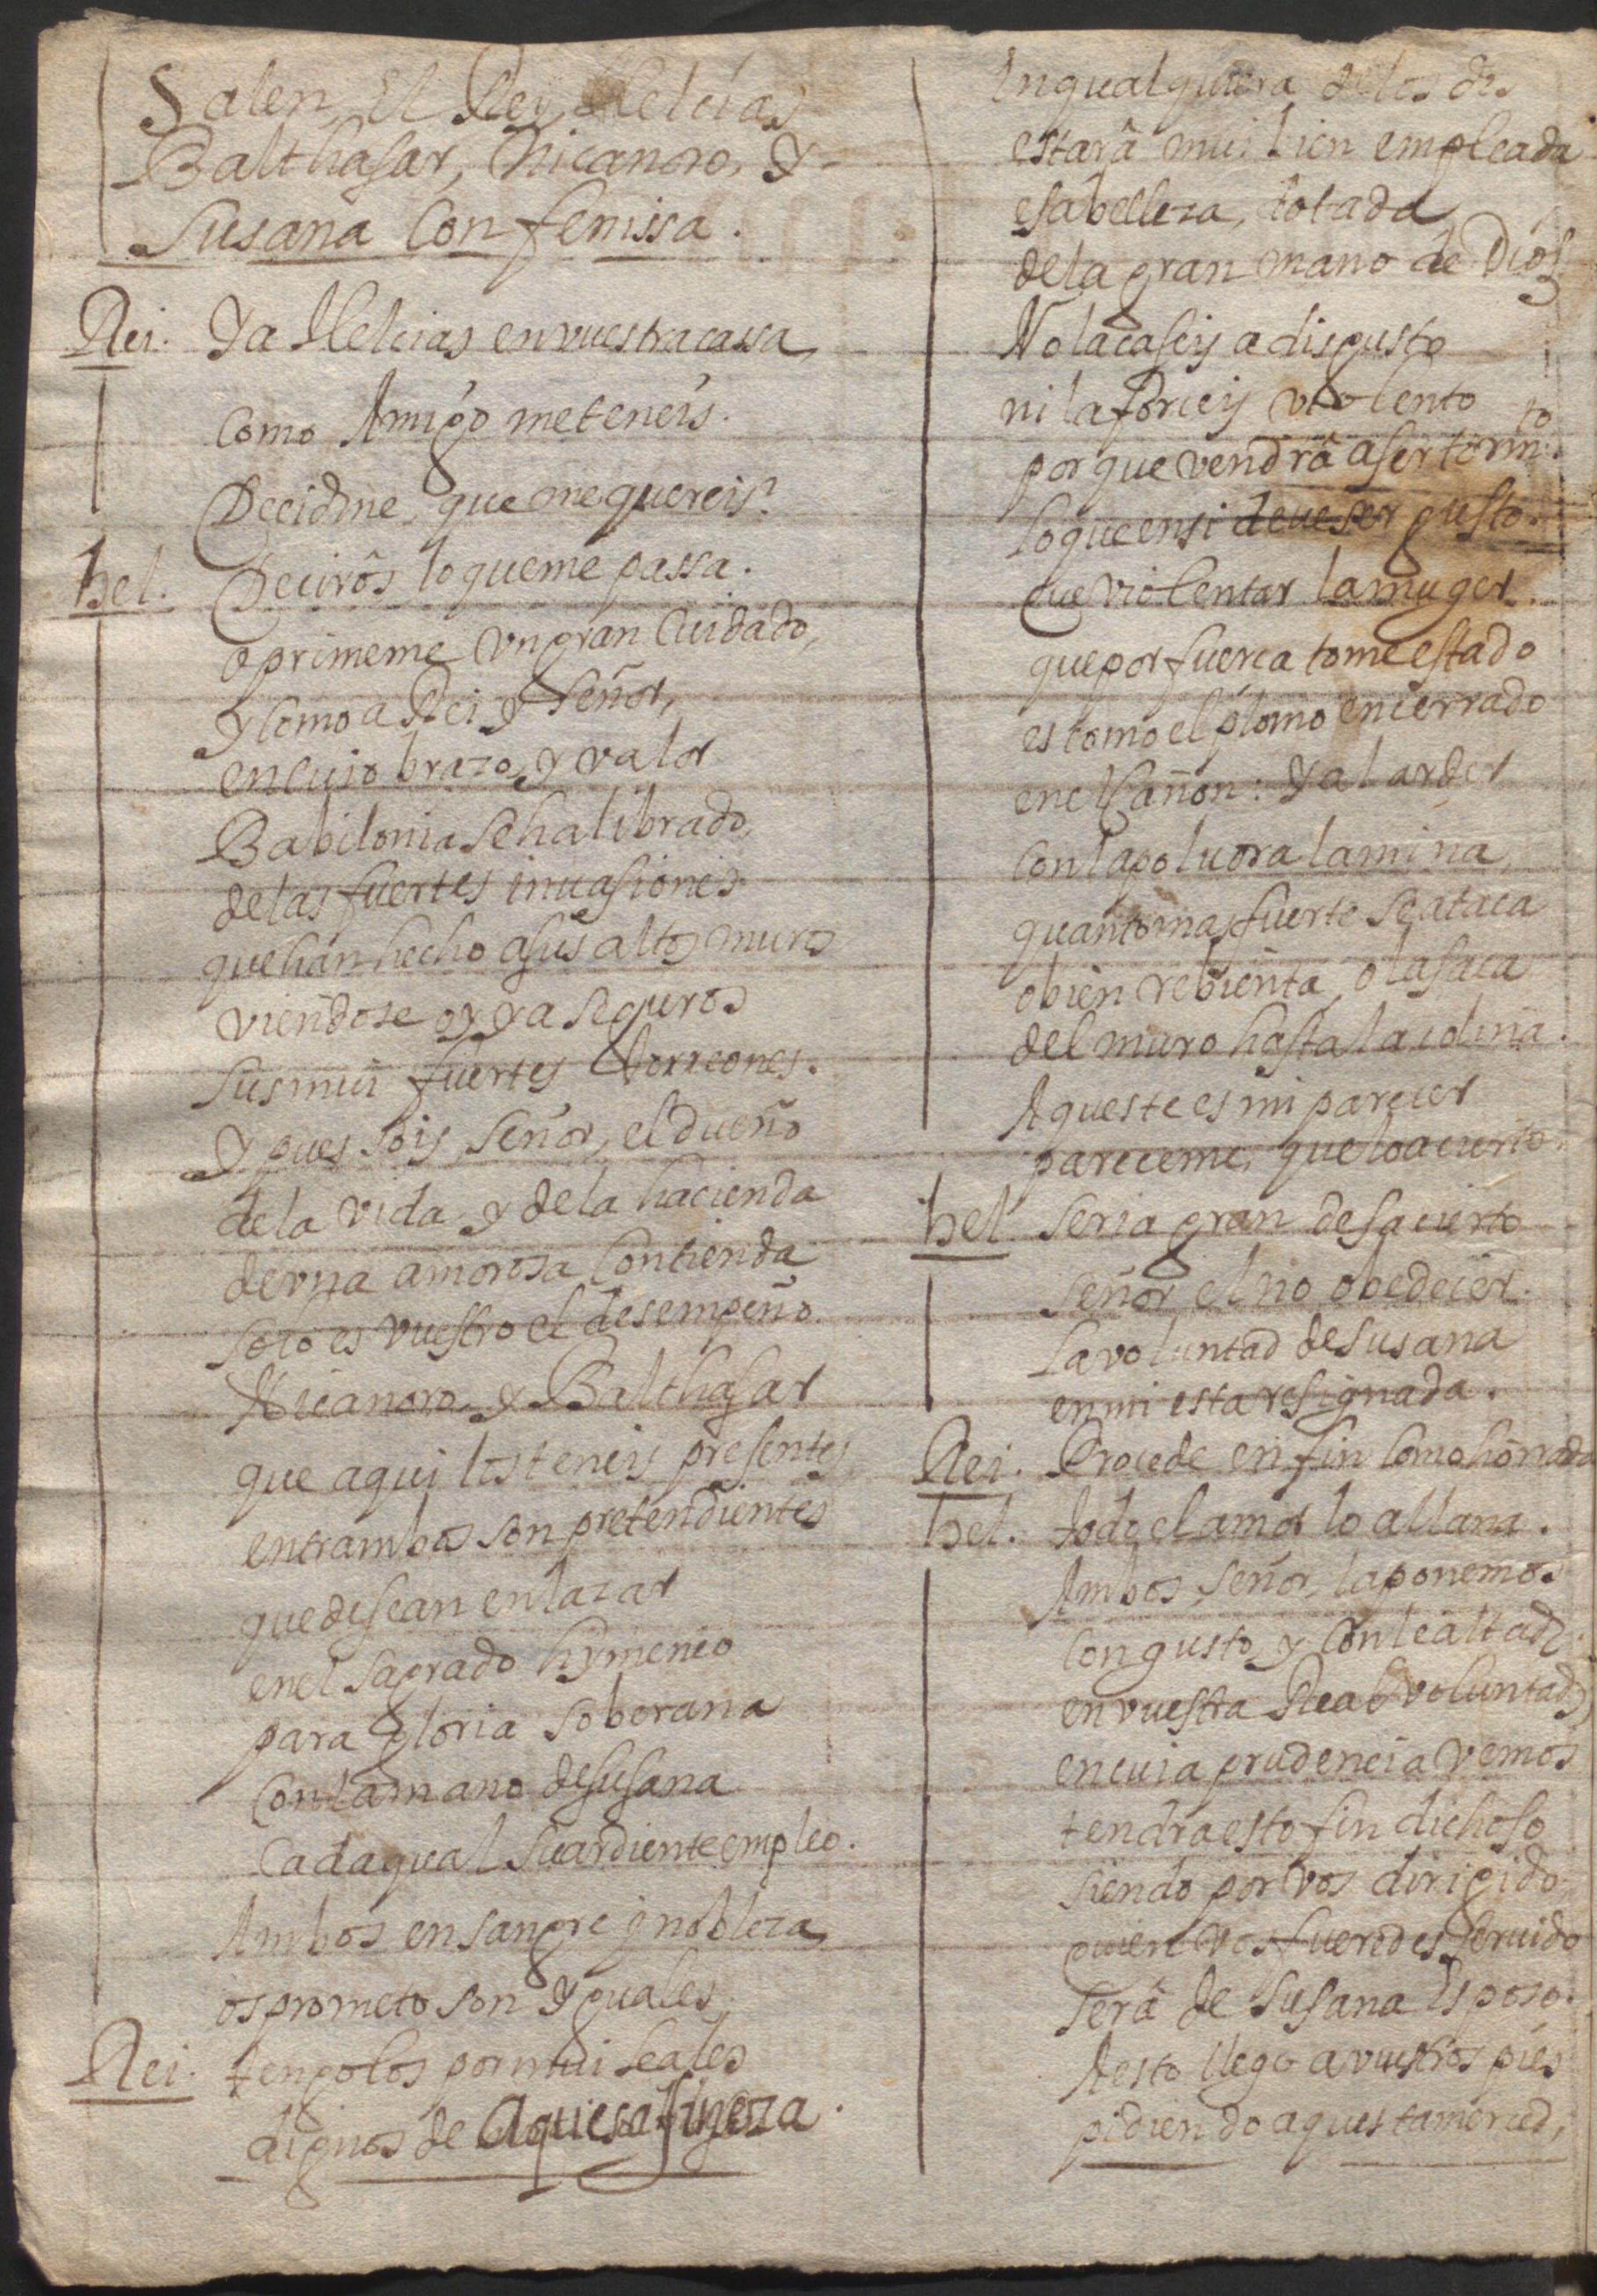 Salen, El Rei, Helcias
Balthasar, Nicanoro, Y
Susana Con fenissa.
Rei. Ya Helcias en vuestra cassa,
Como Amigo me teneis.
Decidme, que me quereis?
hel. Decirôs lo que me passa.
oprimeme Vn gran Cuidado,
y Como a Rei Y Señor,
en cuio brazo, y valor
Babilonia se ha librado,
de las fuertes inuasiones
que hán hecho a sus altos muros
viendose oy ya seguros
sus mui fuertes Torreones.
Y pues sois, Señor, el dueño
de la vida y de la hacienda
de vna amorosa Contienda
solo es vuestro el desempeño.
Nicanoro, Y Balthasar
que aqui los teneis presentes
entrambos son pretendientes
que desean enlazar
en el sagrado hymeneo
para gloria soberana
Con la mano de Susana
Cada qual su ardiente empleo.
Ambos en sangre y nobleza,
os prometo son Yguales,
Rei. tengolos por mui leales
dignos de Aquesa fineza.
En qualquiera de los dos
estarâ mui bien empleada
esa belleza, dotada
de la gran mano de Dios
No la caseis a disgusto
ni la forceis violento
por que vendrâ a ser torm.to
lo que en si deue ser gusto.
Que violentar la muger
que por fuerca tome estado
es como el plomo encerrado
en el Cañon: Y al arder
Con la poluora la mina,
quanto mas fuerte se ataca
o bien rebienta, o la saca
del muro hasta la colina.
Aqueste es mi parecer
pareceme, que lo acierto.
hel. seria gran desacierto
Señor el no obedecer.
La voluntad de Susana
en mi esta resignada.
Rei. Procede en fin Como hónrada
hel. todo el amor lo allana.
Ambos, señor, la ponemos
Con gusto, y Con lealtad
en vuestra Real voluntad,
en cuia prudencia vemos
tendra esto fin dichoso
siendo por vos dirigido
quien vos fueredes seruido
serâ de Susana Esposo.
A esto llego a vuestros pies
pidiendo aquesta merced,